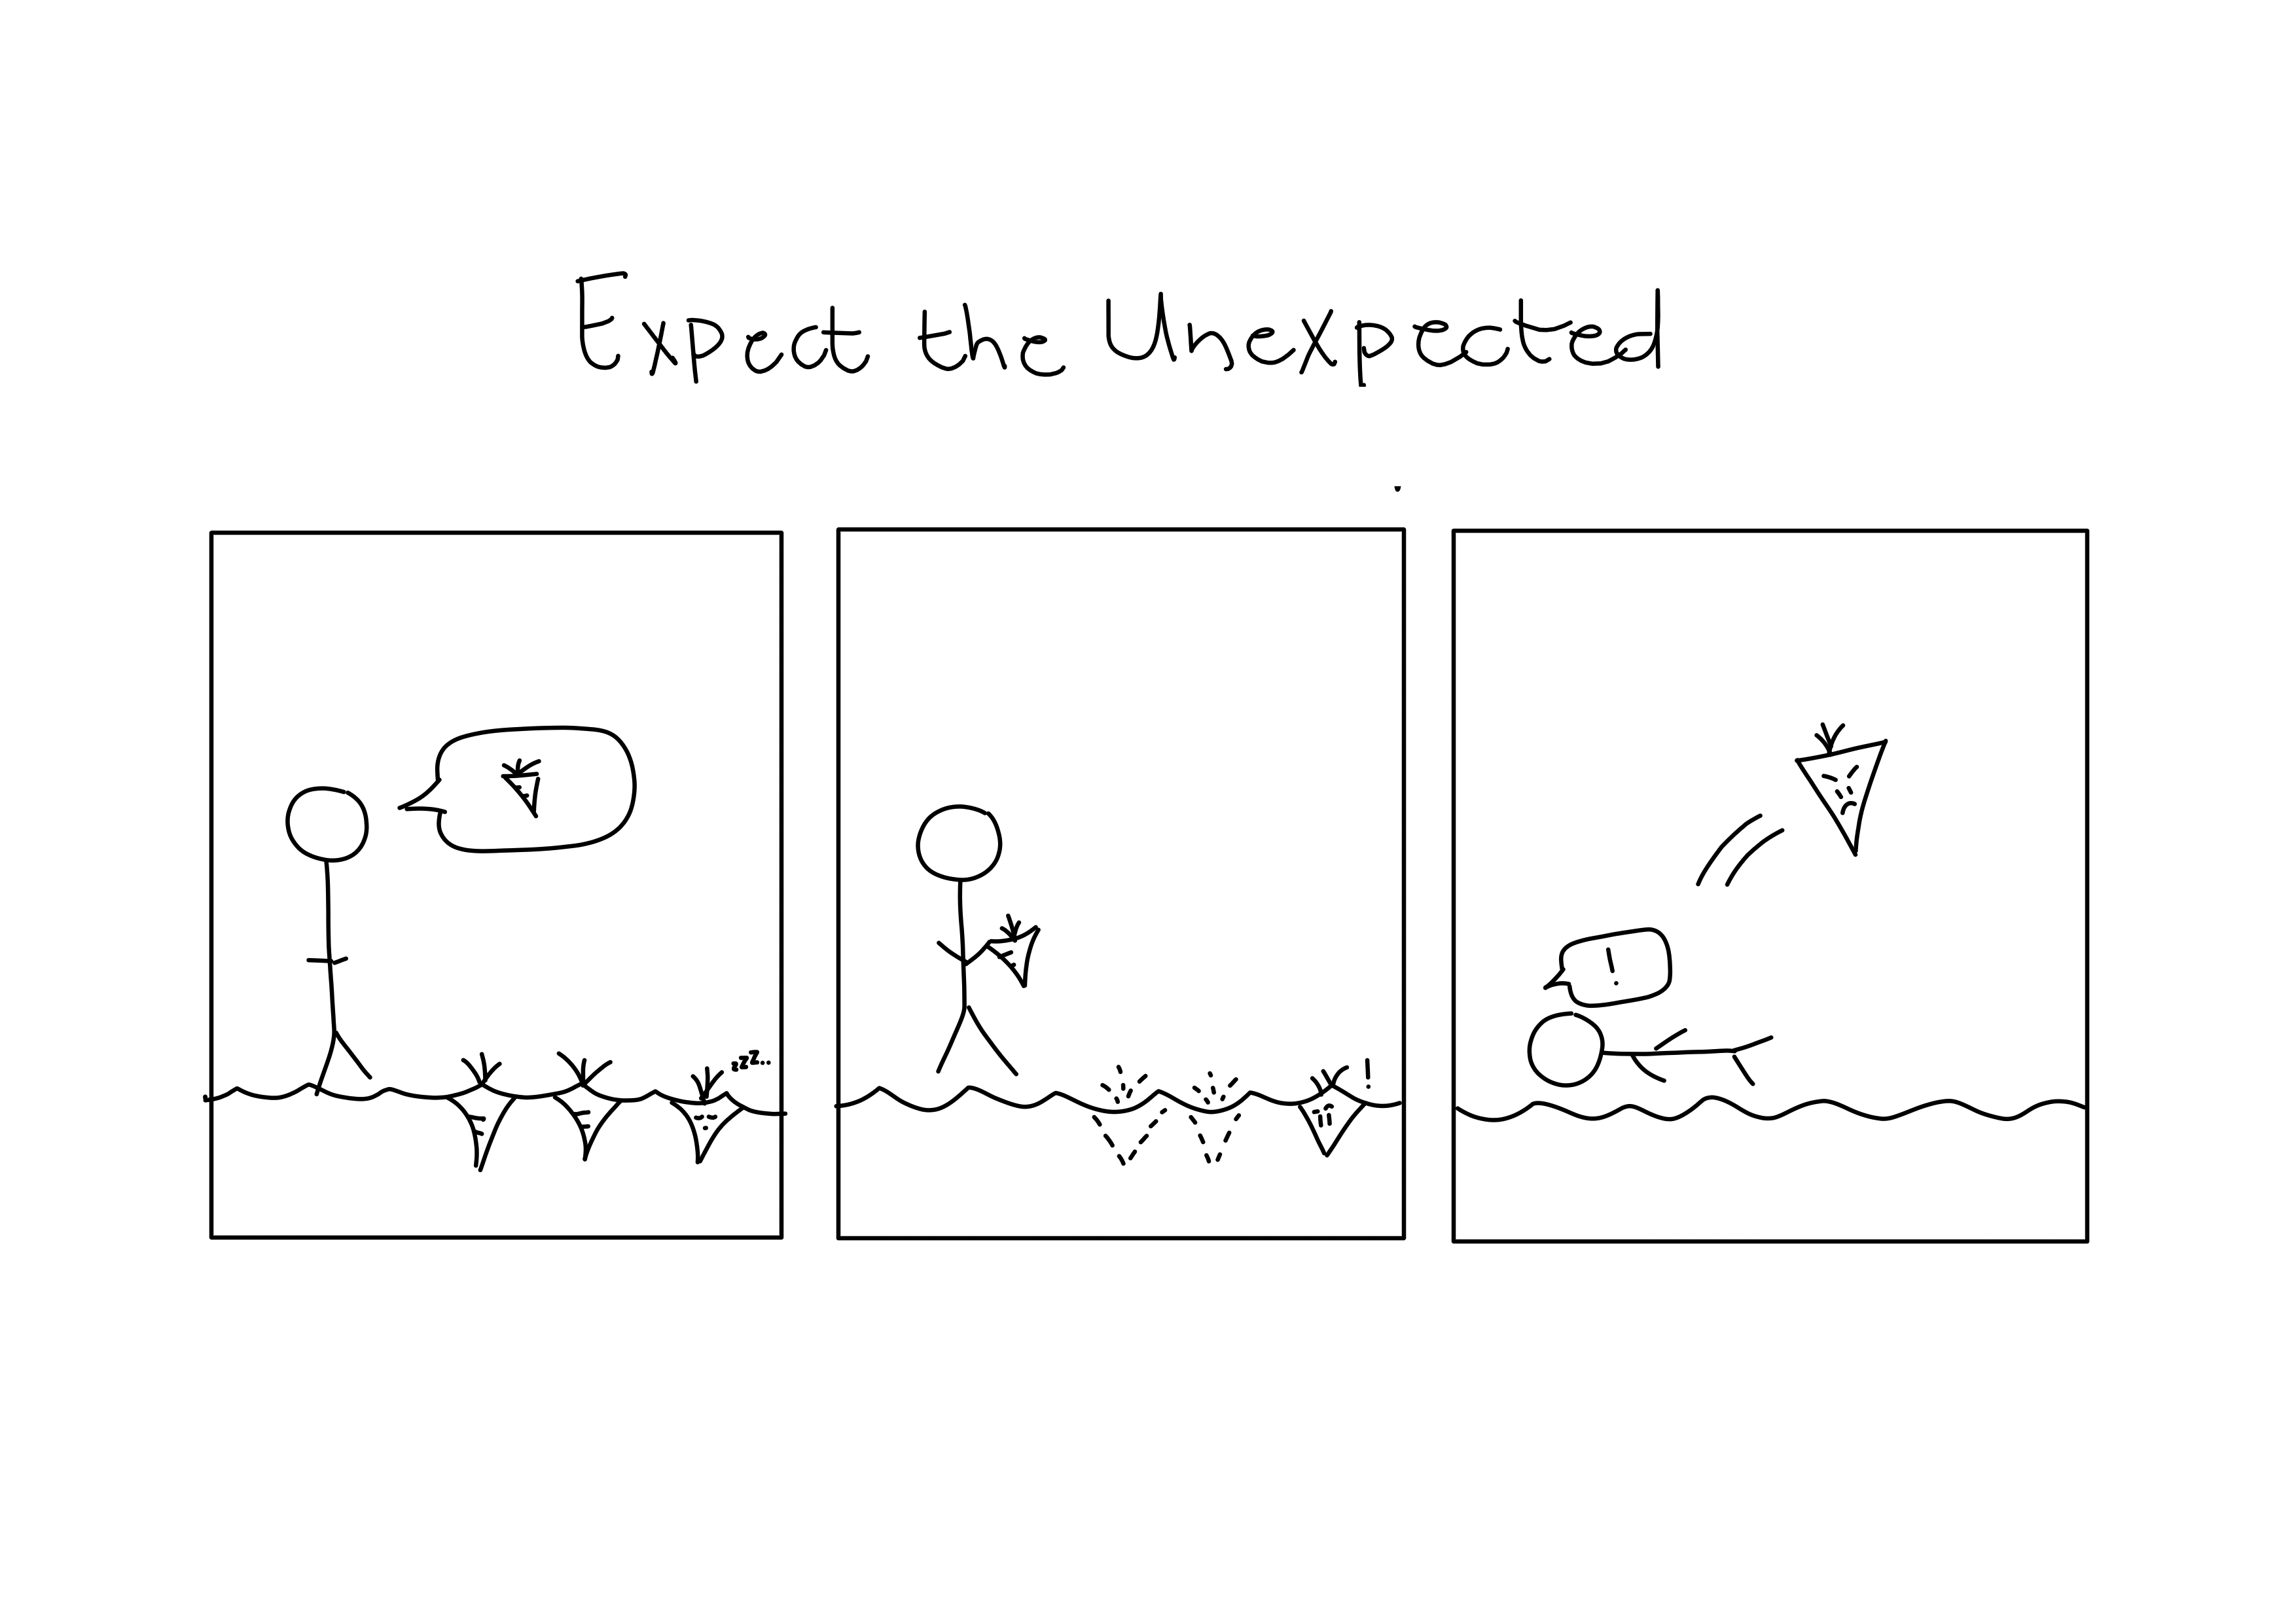 Expect the Unexpected
zzz..
!
!